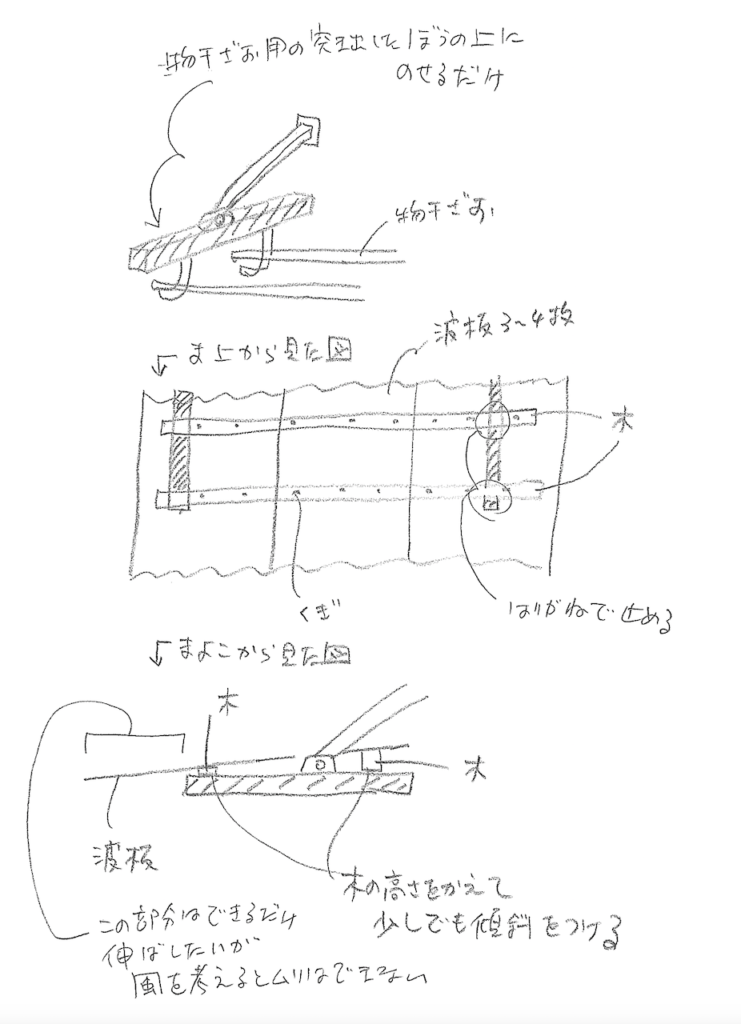 物干ざお用の突き出したぼうの上に
のせるだけ
物干ざお
ま上から見た図
波板3~4枚
木
くぎ
はりがねで止める
まよこから見た図
木
木
波板
木の高さをかえて
少しでも傾斜をつける
この部分はできるだけ
伸ばしたいが
風を考えるとムリはできない